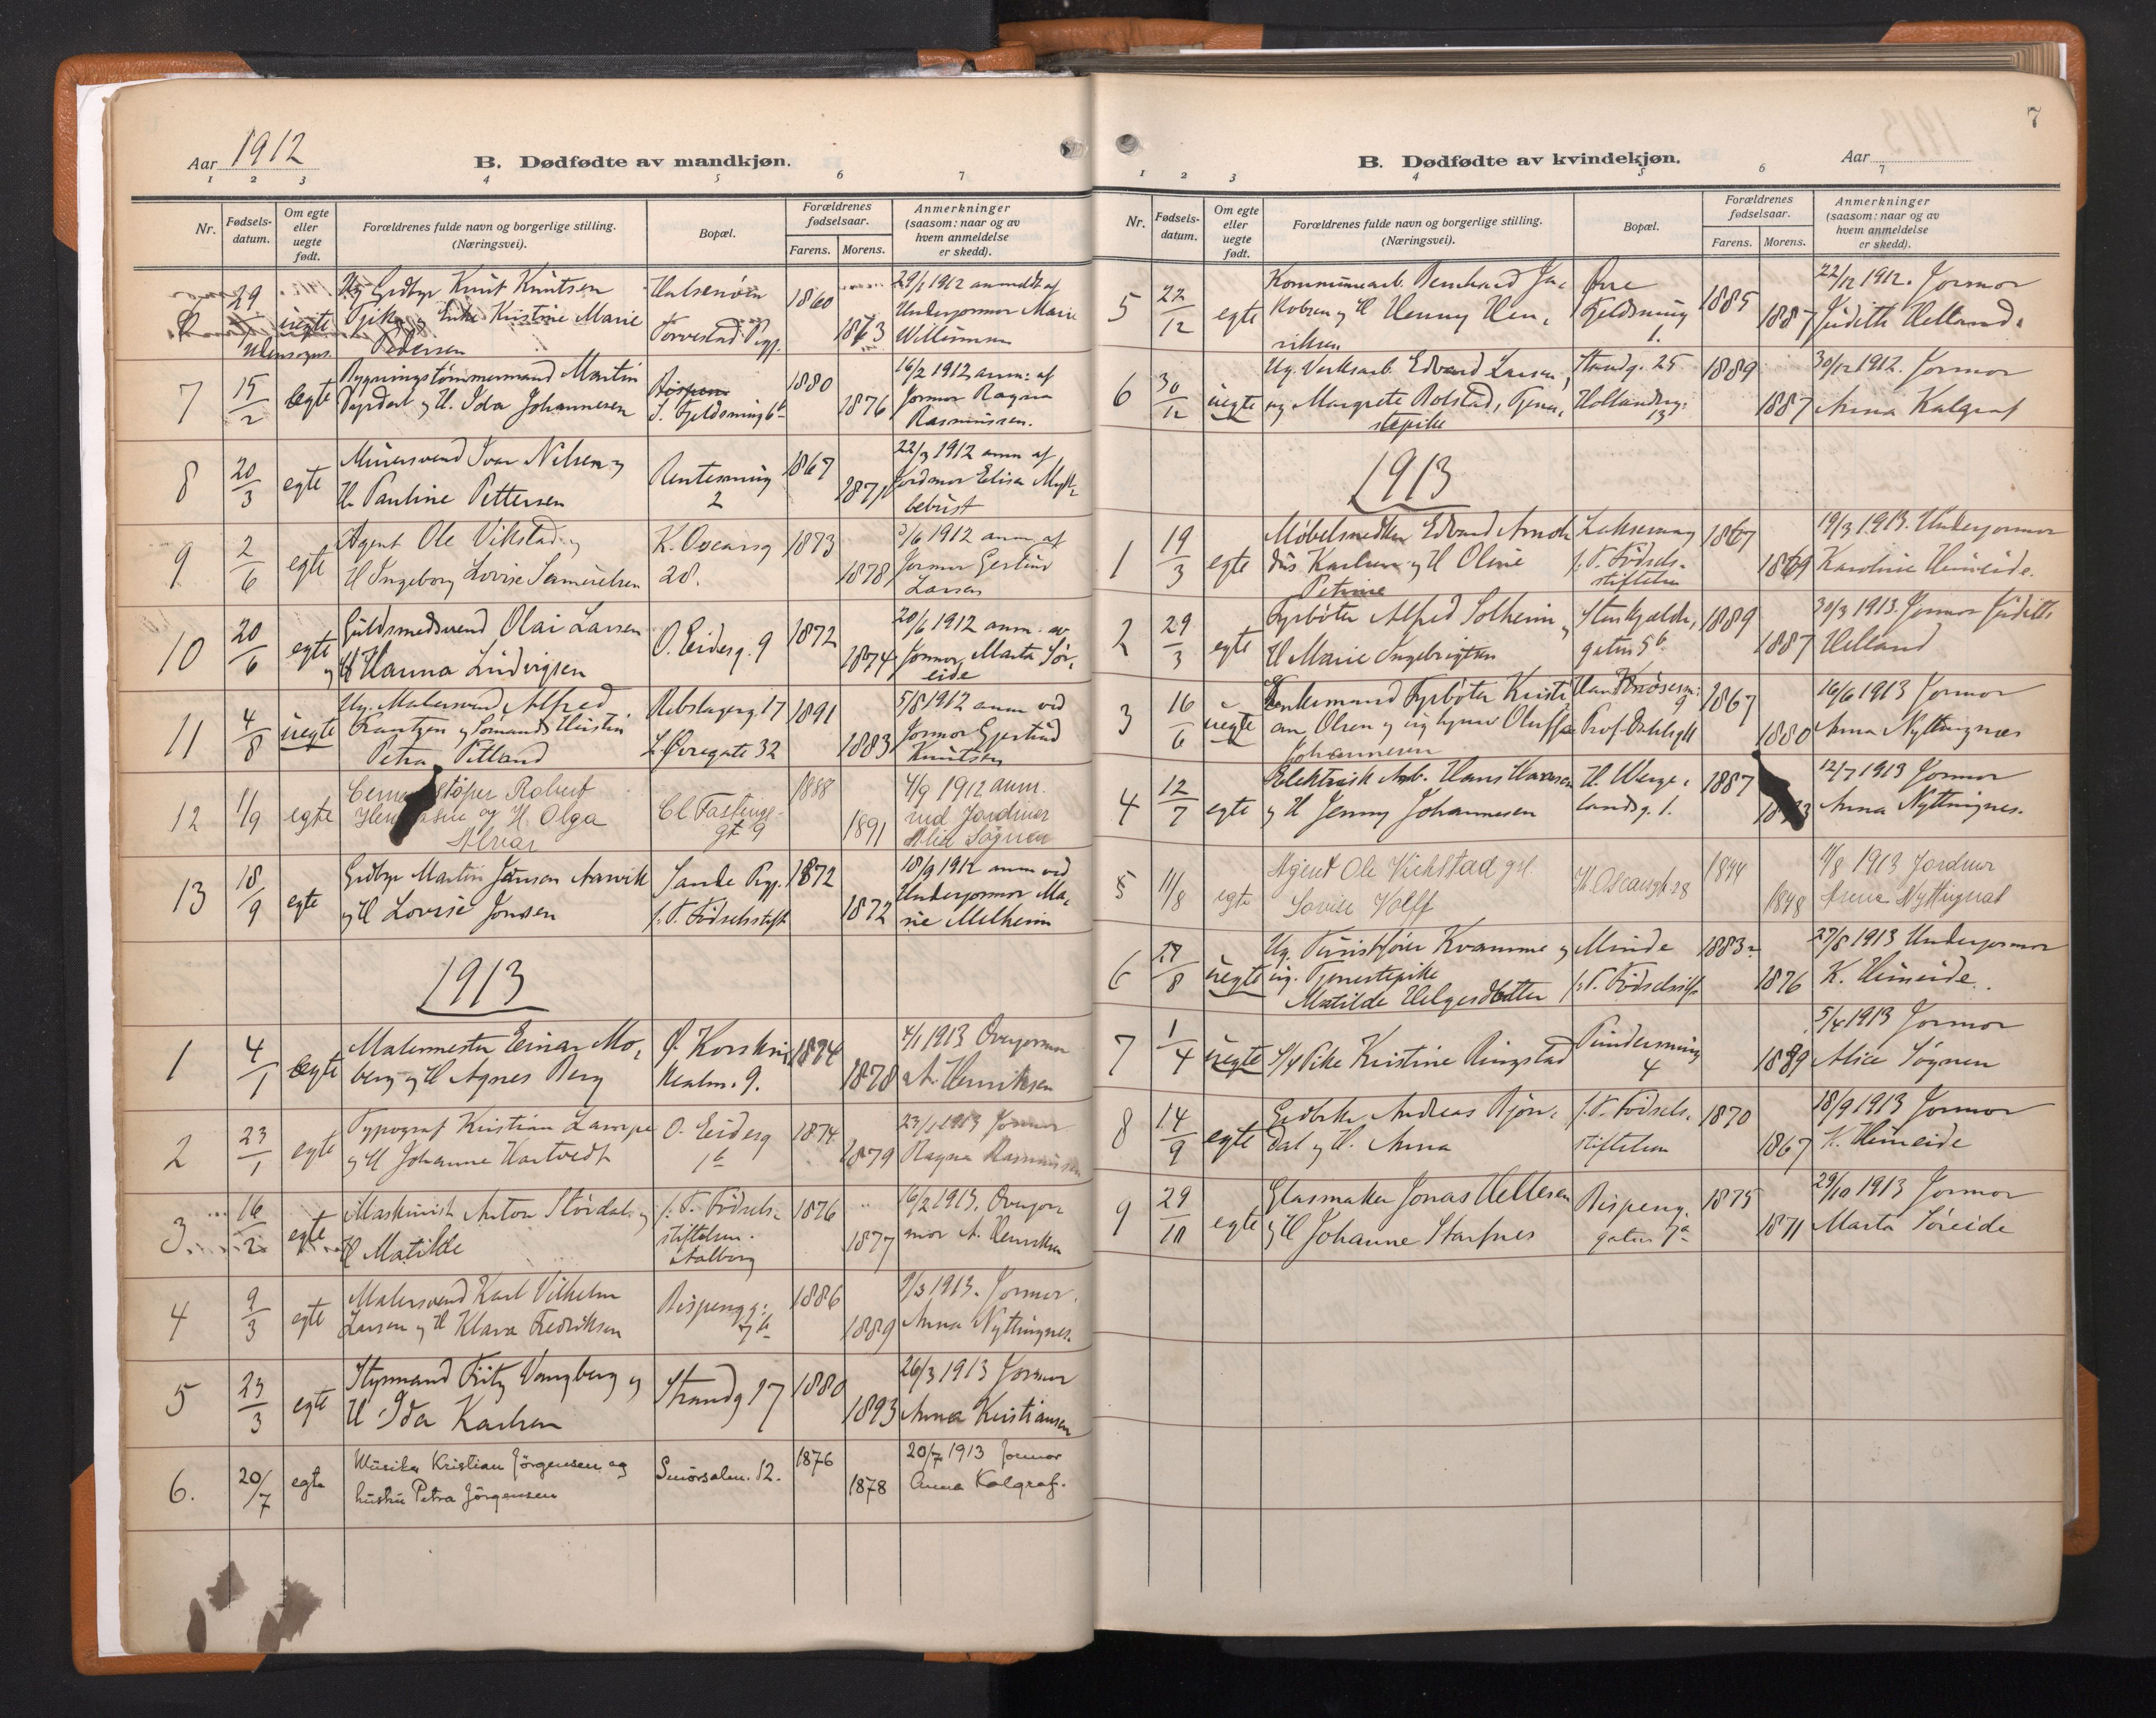 Aar 1912
B. Dødfødte av mandkjøn.
1 2 3 4 5 6 7
Nr. Fødsels-datum. Om egte eller uegte født. Forældrenes fulde navn og borgerlige stilling. (Næringsvei). Bopæl. Forældrenes fødselsaar. Farens. Morens. Anmerkninger (saasom: naar og av hvem anmeldelse er skedd).
29 uegte Ug Grdbr Knut Knutsen
og Enke Kristine Marie
Pedersen
Torvestad Pgj.
1860 1863
29/1 1912 anmeldt af
Underjormor Marie
Willumsen
7 15/2 egte Bygningstømmermand Martin
og H. Ida Johannesen
1880 1876
16/2 1912 anm: af
Jormor Ragna
Rasmussen.
8 20/3 egte Murersvend Ivar Nilsen og
H. Pauline Pettersen
2
1867 1871
22/3 1912 anm af
Jordmor Elisa Mykle-
bust
9 2/6 egte Agent Ole Vikstad og
H Ingeborg Lovise Samuelsen
K. Oscarsg
28.
1873 1878
3/6 1912 anm. af
Jormor Gertine
Larsen
10 20/6 egte Guldsmedsvend Olai Larsen
og H Hanna Ludvigsen
O. Eidesg. 9
1872 1874
20/6 1912 anm. av
Jormor, Marta Sør-
eide
11 4/8 uegte Ug. Malersvend Alfred
Frantzen og Sømands Hustru
Petra Pettand
Rebslagerg. 17
L. Øvregate 32
1891 1883
5/8 1912 anm ved
Jormor Gjertrud
Knutsen
12 1/9 egte Robert
og H. Olga
Cl Fastings
gt 9
1888 1891
4/9 1912 anm.
ved Jordmor
Alice Søgnen
13 18/9 egte Grdbr Martin Jonson Aarvik
og H Lovise Jonsen
Sande Pgj.
f. T. Fødselsstift
1872 1872
18/9 1912 anm ved
Underjormor Ma-
rie Melheim
1913
1 4/1 egte Malermester Einar Mo-
berg og H Agnes Berg
Ø. Korskirke
alm. 9.
1874 1878
4/1 1913 Overjormor
A. Henriksen
2 23/1 egte Typograf Kristian Lampe
og H Johanne Hartvedt
O. Eidesg
1b
1874 1879
23/1 1913 Jormor
Ragna Rasmussen
3 16/2 egte Maskinist Anton Stördal og
H Matilde
f. T. Fødsels-
stiftelsen.
Aalborg
1876 1877
16/2 1913. Overjor-
mor A. Henriksen
4 9/3 egte Malersvend Karl Vilhelm
Larsen og H Klara Fredriksen
Bispengg:
7b
1886 1889
9/3 1913. Jormor.
Anna Nyttingnes.
5 23/3 egte Styrmand Fritz Vangberg og
H Ida Karlsen
Strandg 17
1880 1893
26/3 1913 Jormor
Anna Kristiansen
6. 20/7 egte Musiker Kristian Jörgensen og
hustru Petra Jörgensen
Smörsalm. 12.
1876 1878
20/7 1913 Jormor
Anna Kalgraf.
7
B. Dødfødte av kvindekjøn.
Aar
1 2 3 4 5 6 7
Nr. Fødsels-datum. Om egte eller uegte født. Forældrenes fulde navn og borgerlige stilling. (Næringsvei). Bopæl. Forældrenes fødselsaar. Farens. Morens. Anmerkninger (saasom: naar og av hvem anmeldelse er skedd).
5 22/12 egte Kommunearb. Bernhard Ja-
kobsen og H Henny Hen-
riksen
Øvre
Fjeldsmug
1.
1885 1887
22/12 1912. Jormor
Judith Helland.
6 30/12 uegte Ug. Verksarb. Edvard Larsen,
og Margrete Rolstad, Tjene-
stepike
Strandg. 25
Hollenderg:
13
1889 1887
30/12 1912. Jormor
Anna Kalgraf
1913
1 19/3 egte Møbelsnedker Edvard Arnol-
dus Karlsen og H Oline
Petrine
f. T. Fødsels-
stiftelsen
1867 1869
19/3 1913. Underjormor
Karoline Heimeide.
2 29/3 egte Fyrbøter Alfred Solheim og
H Marie Ingebrigtsen
Stenkjelder-
gaten 5b.
1889 1887
30/3 1913. Jormor Judith
Helland
3 16/6 uegte Enkemand Fyrbøter Kristi-
an Olsen og ug Oluffa
Johannesen
9
1867 1880
16/6 1913 Jormor
Anna Nyttingnes
4 12/7 egte Elektrisk Arb. Hans Hansen
og H Jenny Johannesen
H. Werge-
landsg. 1.
1887
12/7 1913 Jormor
Anna Nyttingnes.
5 11/8 egte Agent Ole Vickstad og H.
Lovise Wolff
K. Oscarsgt. 28
1844 1848
11/8 1913 Jordmor
Anna Nyttignes
6 27/8 uegte Ug. Turistfører Kvamme og
ug. Tjenestepike
Matilde Helgesdotter
Minde
f. T. Fødselsstift
1883 1876
27/8 1913 Underjormor
K. Heimeide.
7 1/4 uegte Pike Kristine Ringstad
4
1889
5/4 1913 Jormor
Alice Søgnen
8 14/9 egte Grdbr Andreas Bjørn-
dal og H. Anna
f. T. Fødsels-
stiftelsen
1870 1867
18/9 1913 Jormor
K. Heimeide
9 29/10 egte Glasmaker Jonas Hellesen
og H Johanne Starfnes
Bispeng-
gaten 7a
1875 1871
29/10 1913 Jormor
Marta Søreide